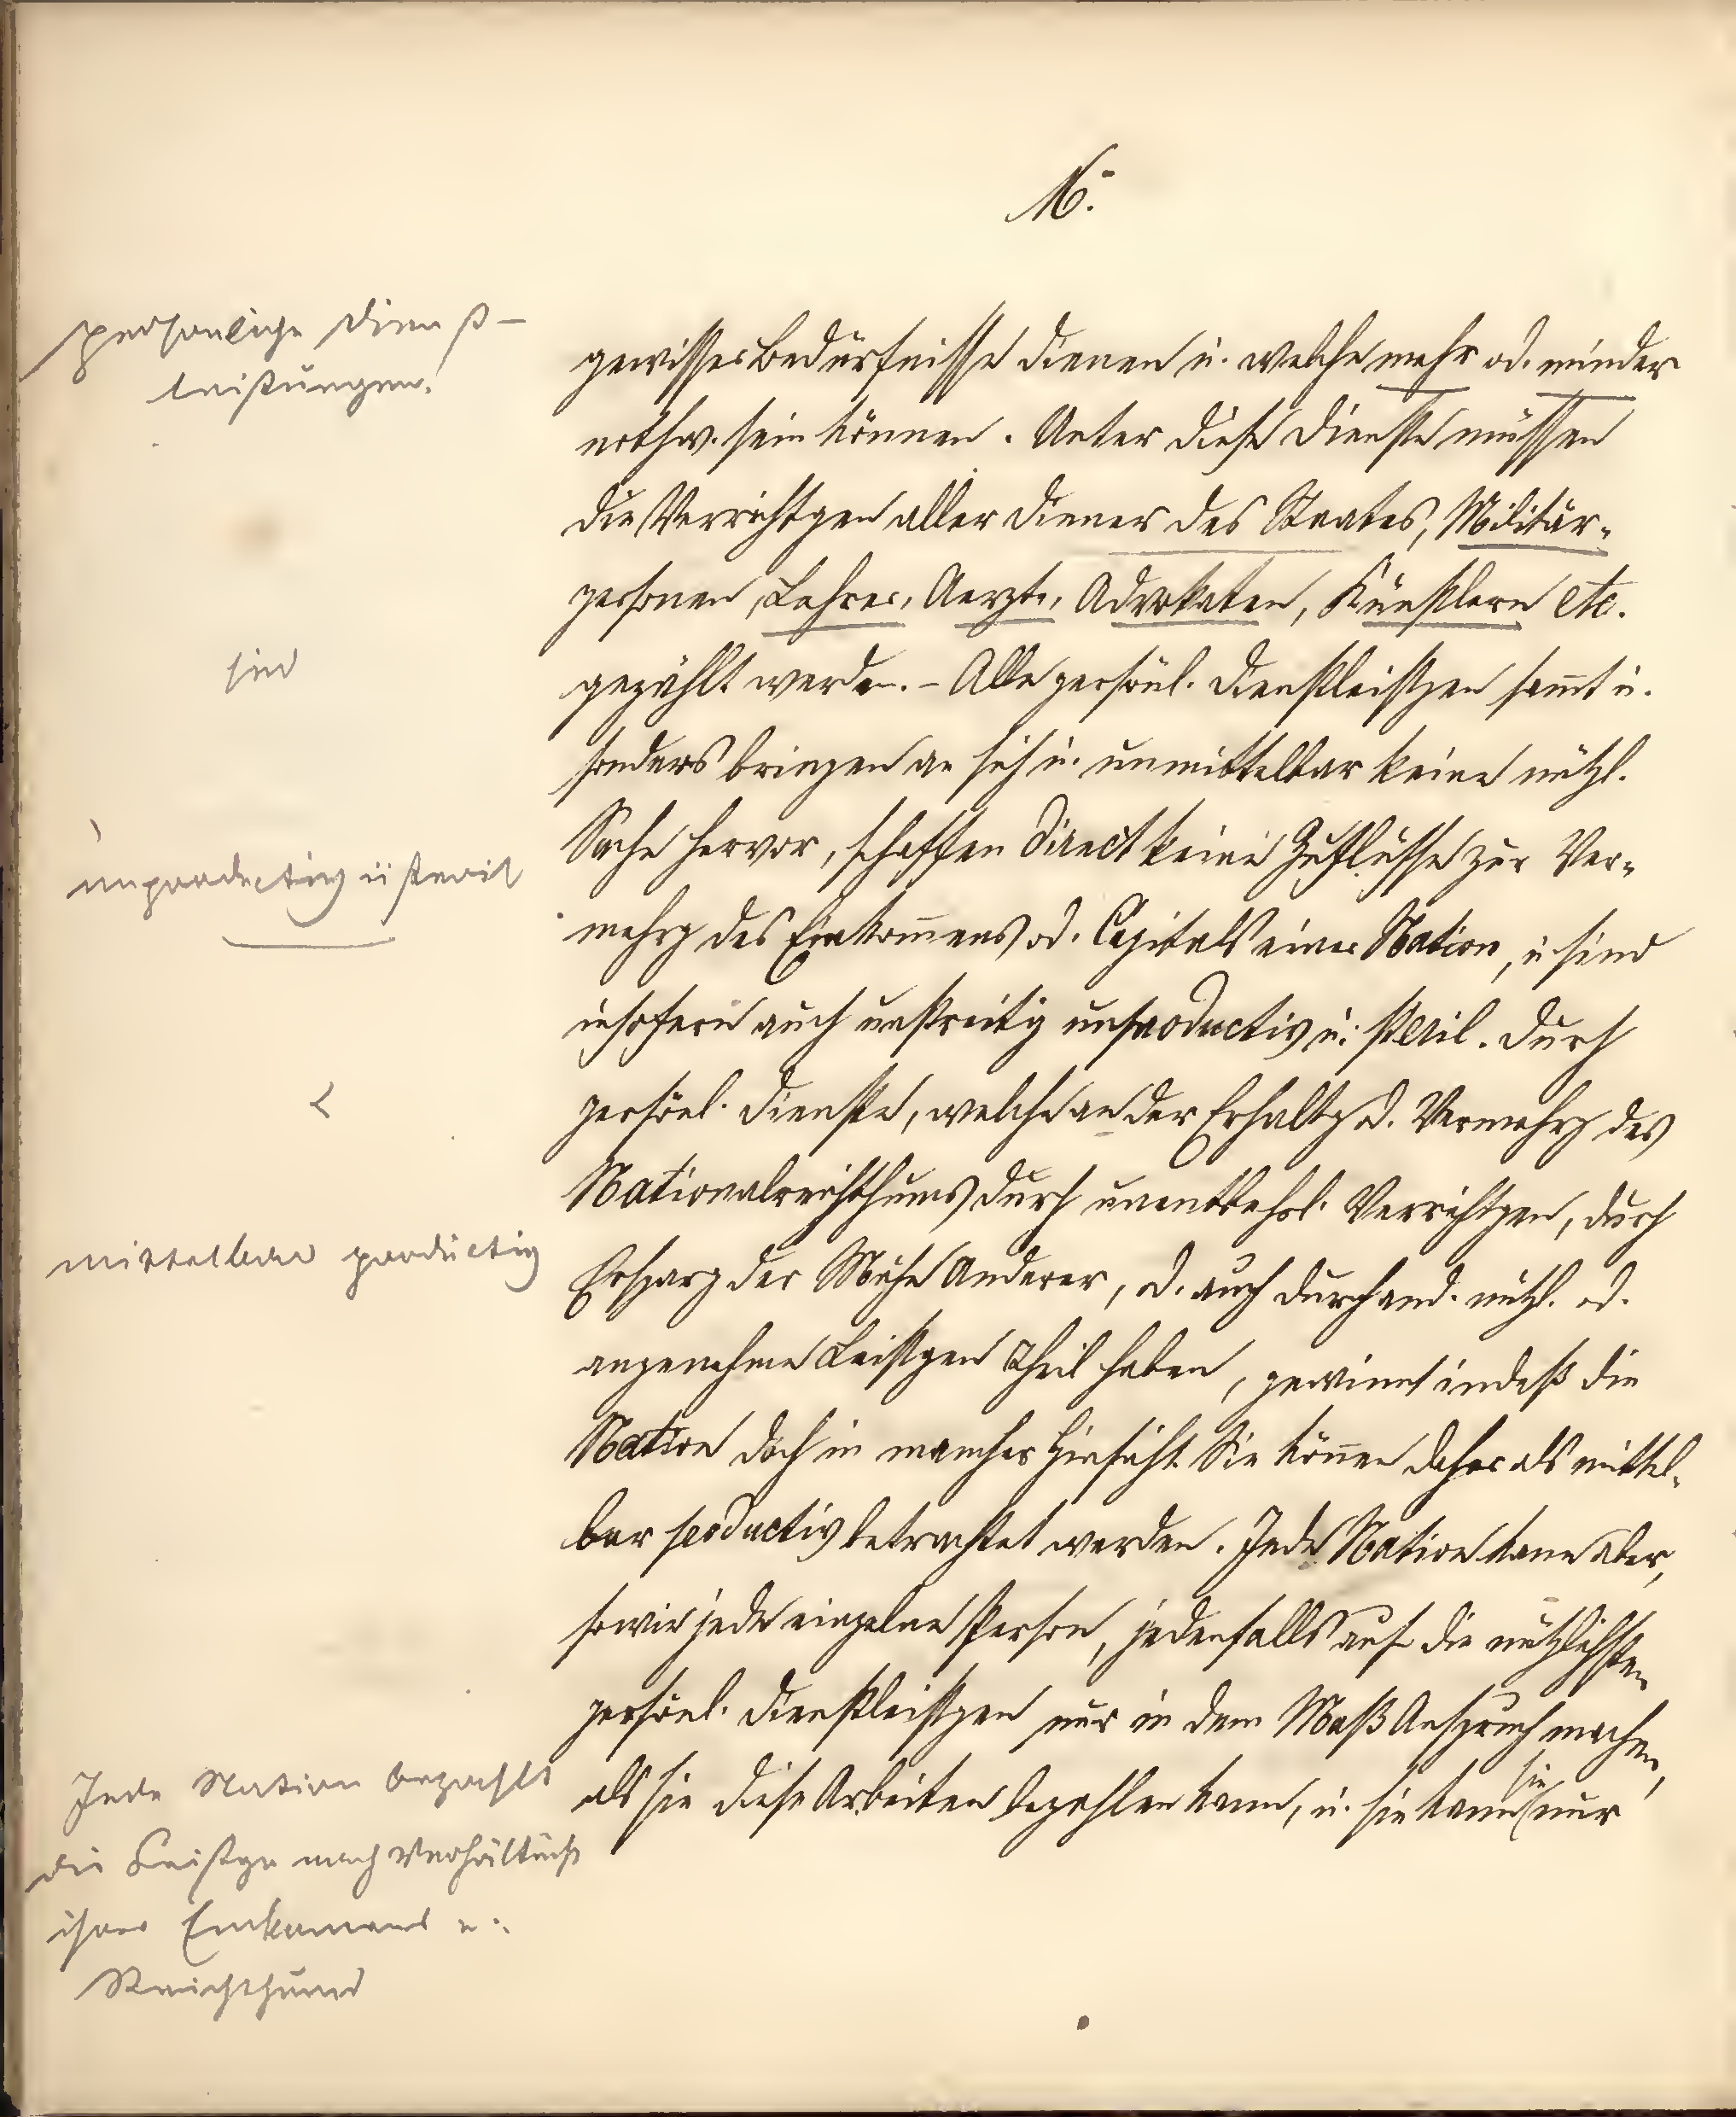 16.
persönliche Dienst-
leistungen.
gewisser Bedürfnisse dienen u. welche mehr od. minder
nothw. sein können. Unter diese Dienste müssen
die Verrichtgen aller Diener des Staates, Militär-
personen, Lehrer, Aerzte, Advokaten, Künstlern etc.
gezählt werden. – Alle persönl. Dienstleistgen sammt u.
sind
sonders bringen an sich u. unmittelbar keine nützl.
Sache hervor, schaffen direct keine Zuflüsse zur Ver-
unproductiv u steril
mehrg des Einkom̅ens od. Capitals einer Nation, u. sind
insofern auch unstreitig unproductiv u. steril. Durch
persönl. Dienste, welche an der Erhaltg od. Vermehrg des
Nationalreichthums durch unentbehrl. Verrichtgen, durch
mittelbar productiv
Ersparg der Mühe Anderer, od. auch durch and. nützl. od.
angenehme Leistgen Theil haben, gewinnt indeß die
Nation doch in mancher Hinsicht. Sie kön̅en daher als mittel-
bar productiv betrachtet werden. Jede Nation kann aber,
sowie jede einzelne Person, jedenfalls auf die nützlichsten
persönl. Dienstleistgen nur in dem Maß Anspruch machen,
als sie diese Arbeiten bezahlen kann, u. sie kann sie nur
Jede Nation bezahlt
die Leistgn nach Verhältniß
ihres Einkommens u.
Reichthums